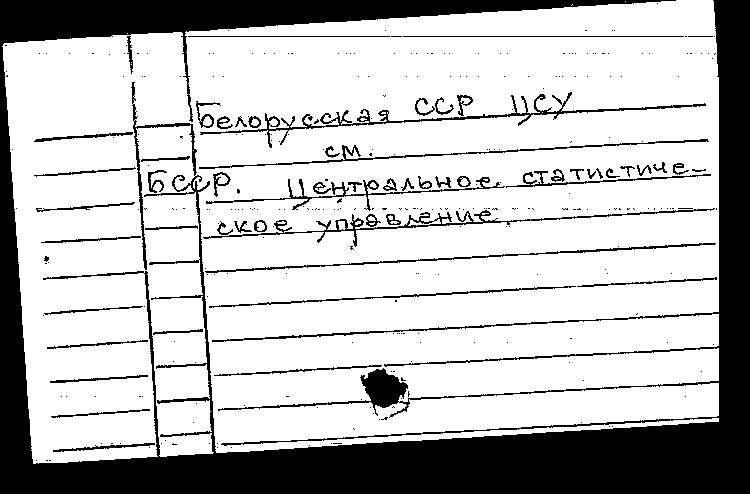 Белорусская ССР ЦСУ
см.
БССР. Центральное статистиче-
ское управление.